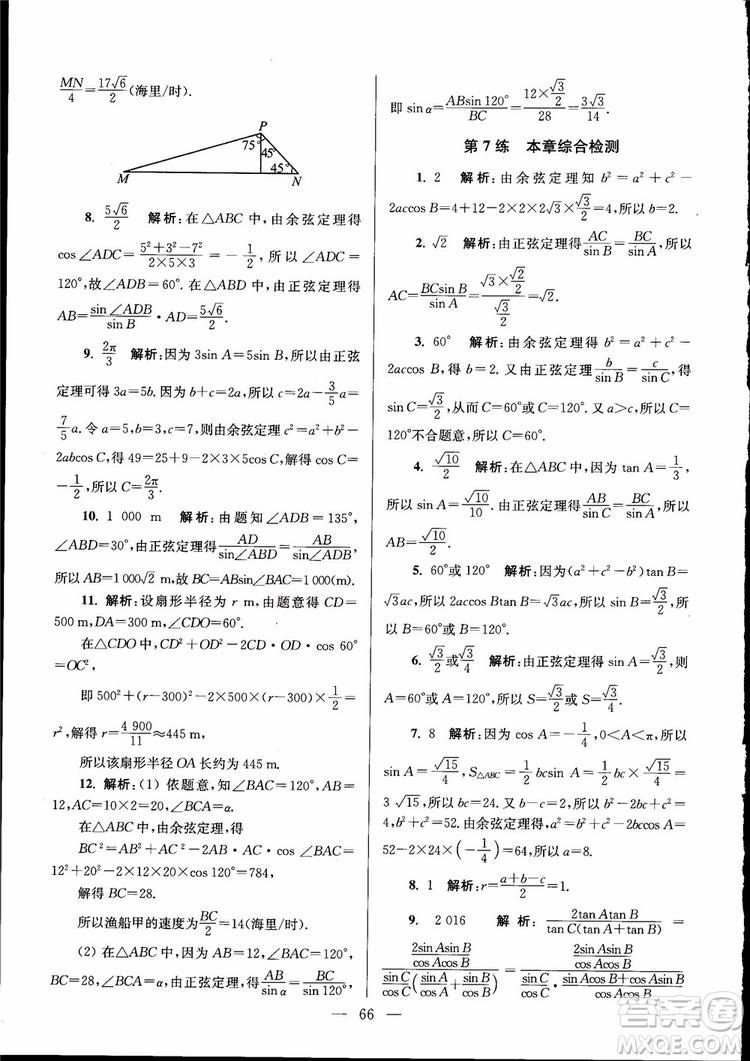 MN/4=17√6/2(海里/时).
P
75°
45°
45°
M
N
8. 5√6/2 解析:在△ABC中,由余弦定理得
cos∠ADC=(5²+3²-7²)/(2×5×3)=-1/2,所以∠ADC=
120°,故∠ADB=60°.在△ABD中,由正弦定理得
AB=sin∠ADB/sin B·AD=5√6/2.
9. 2π/3 解析:因为3sin A=5sin B,所以由正弦
定理可得3a=5b.因为b+c=2a,所以c=2a-3/5a=
7/5a.令a=5,b=3,c=7,则由余弦定理c²=a²+b²-
2abcos C,得49=25+9-2×3×5cos C,解得cos C=
-1/2,所以C=2π/3.
10. 1 000 m 解析:由题知∠ADB=135°,
∠ABD=30°,由正弦定理得AD/sin∠ABD=AB/sin∠ADB,
所以AB=1 000√2 m,故BC=ABsin∠BAC=1 000 m.
11. 解析:设扇形半径为r m,由题意得CD=
500 m,DA=300 m,∠CDO=60°.
在△CDO中,CD²+OD²-2CD·OD·cos 60°
=OC²,
即500²+(r-300)²-2×500×(r-300)×1/2=
r²,解得r=4 900/11≈445 m,
所以该扇形半径OA长约为445 m.
12. 解析:(1) 依题意,知∠BAC=120°,AB=
12,AC=10×2=20,∠BCA=α.
在△ABC中,由余弦定理,得
BC²=AB²+AC²-2AB·AC·cos∠BAC=
12²+20²-2×12×20×cos 120°=784,
解得BC=28.
所以渔船甲的速度为BC/2=14(海里/时).
(2) 在△ABC中,AB=12,∠BAC=120°,
BC=28,∠BCA=α,由正弦定理,得AB/sin α=BC/sin 120°,
即sin α=ABsin 120°/BC=(12×√3/2)/28=3√3/14.
第7练 本章综合检测
1. 2 解析:由余弦定理知b²=a²+c²-
2accos B=4+12-2×2×2√3×√3/2=4,所以b=2.
2. √2 解析:由正弦定理得AC/sin B=BC/sin A,所以
AC=BCsin B/sin A=(√3×√2/2)/(√3/2)=√2.
3. 60° 解析:由余弦定理得b²=a²+c²-
2accos B,得b=7.由正弦定理得b/sin B=c/sin C,得
sin C=√3/2,从而C=60°或C=120°.又a>c,所以C=
120°不合题意,所以C=60°.
4. √10/2 解析:在△ABC中,因为tan A=1/3,
所以sin A=√10/10.由正弦定理得AB/sin C=BC/sin A,所以
AB=√10/2.
5. 60°或120° 解析:因为(a²+c²-b²)tan B=
√3ac,所以2accos Btan B=√3ac,所以sin B=√3/2,
所以B=60°或120°.
6. √3/2或√3/4 解析:由正弦定理得sin A=√3/2,则
A=60°或A=120°,所以S=√3/2或S=√3/4.
7. 8 解析:因为cos A=-1/4,0<A<π,所以
sin A=√15/4,S△ABC=1/2bcsin A=1/2bc×√15/4=
3√15,所以bc=24.又b-c=2,所以b=6,c=
4,b²+c²=52.由余弦定理,得a²=b²+c²-2bccos A=
52-2×24×(-1/4)=64,所以a=8.
8. 1 解析:r=(a+b-c)/2=1.
9. 2 016 解析:2tan Atan B/tan C(tan A+tan B)=
(2sin Asin B/cos Acos B)/(sin C/cos C(sin A/cos A+sin B/cos B))=(2sin Asin B/cos Acos B)/(sin C/cos C·(sin Acos B+cos Asin B)/cos Acos B)=
— 66 —
答案圈
MXQE.COM